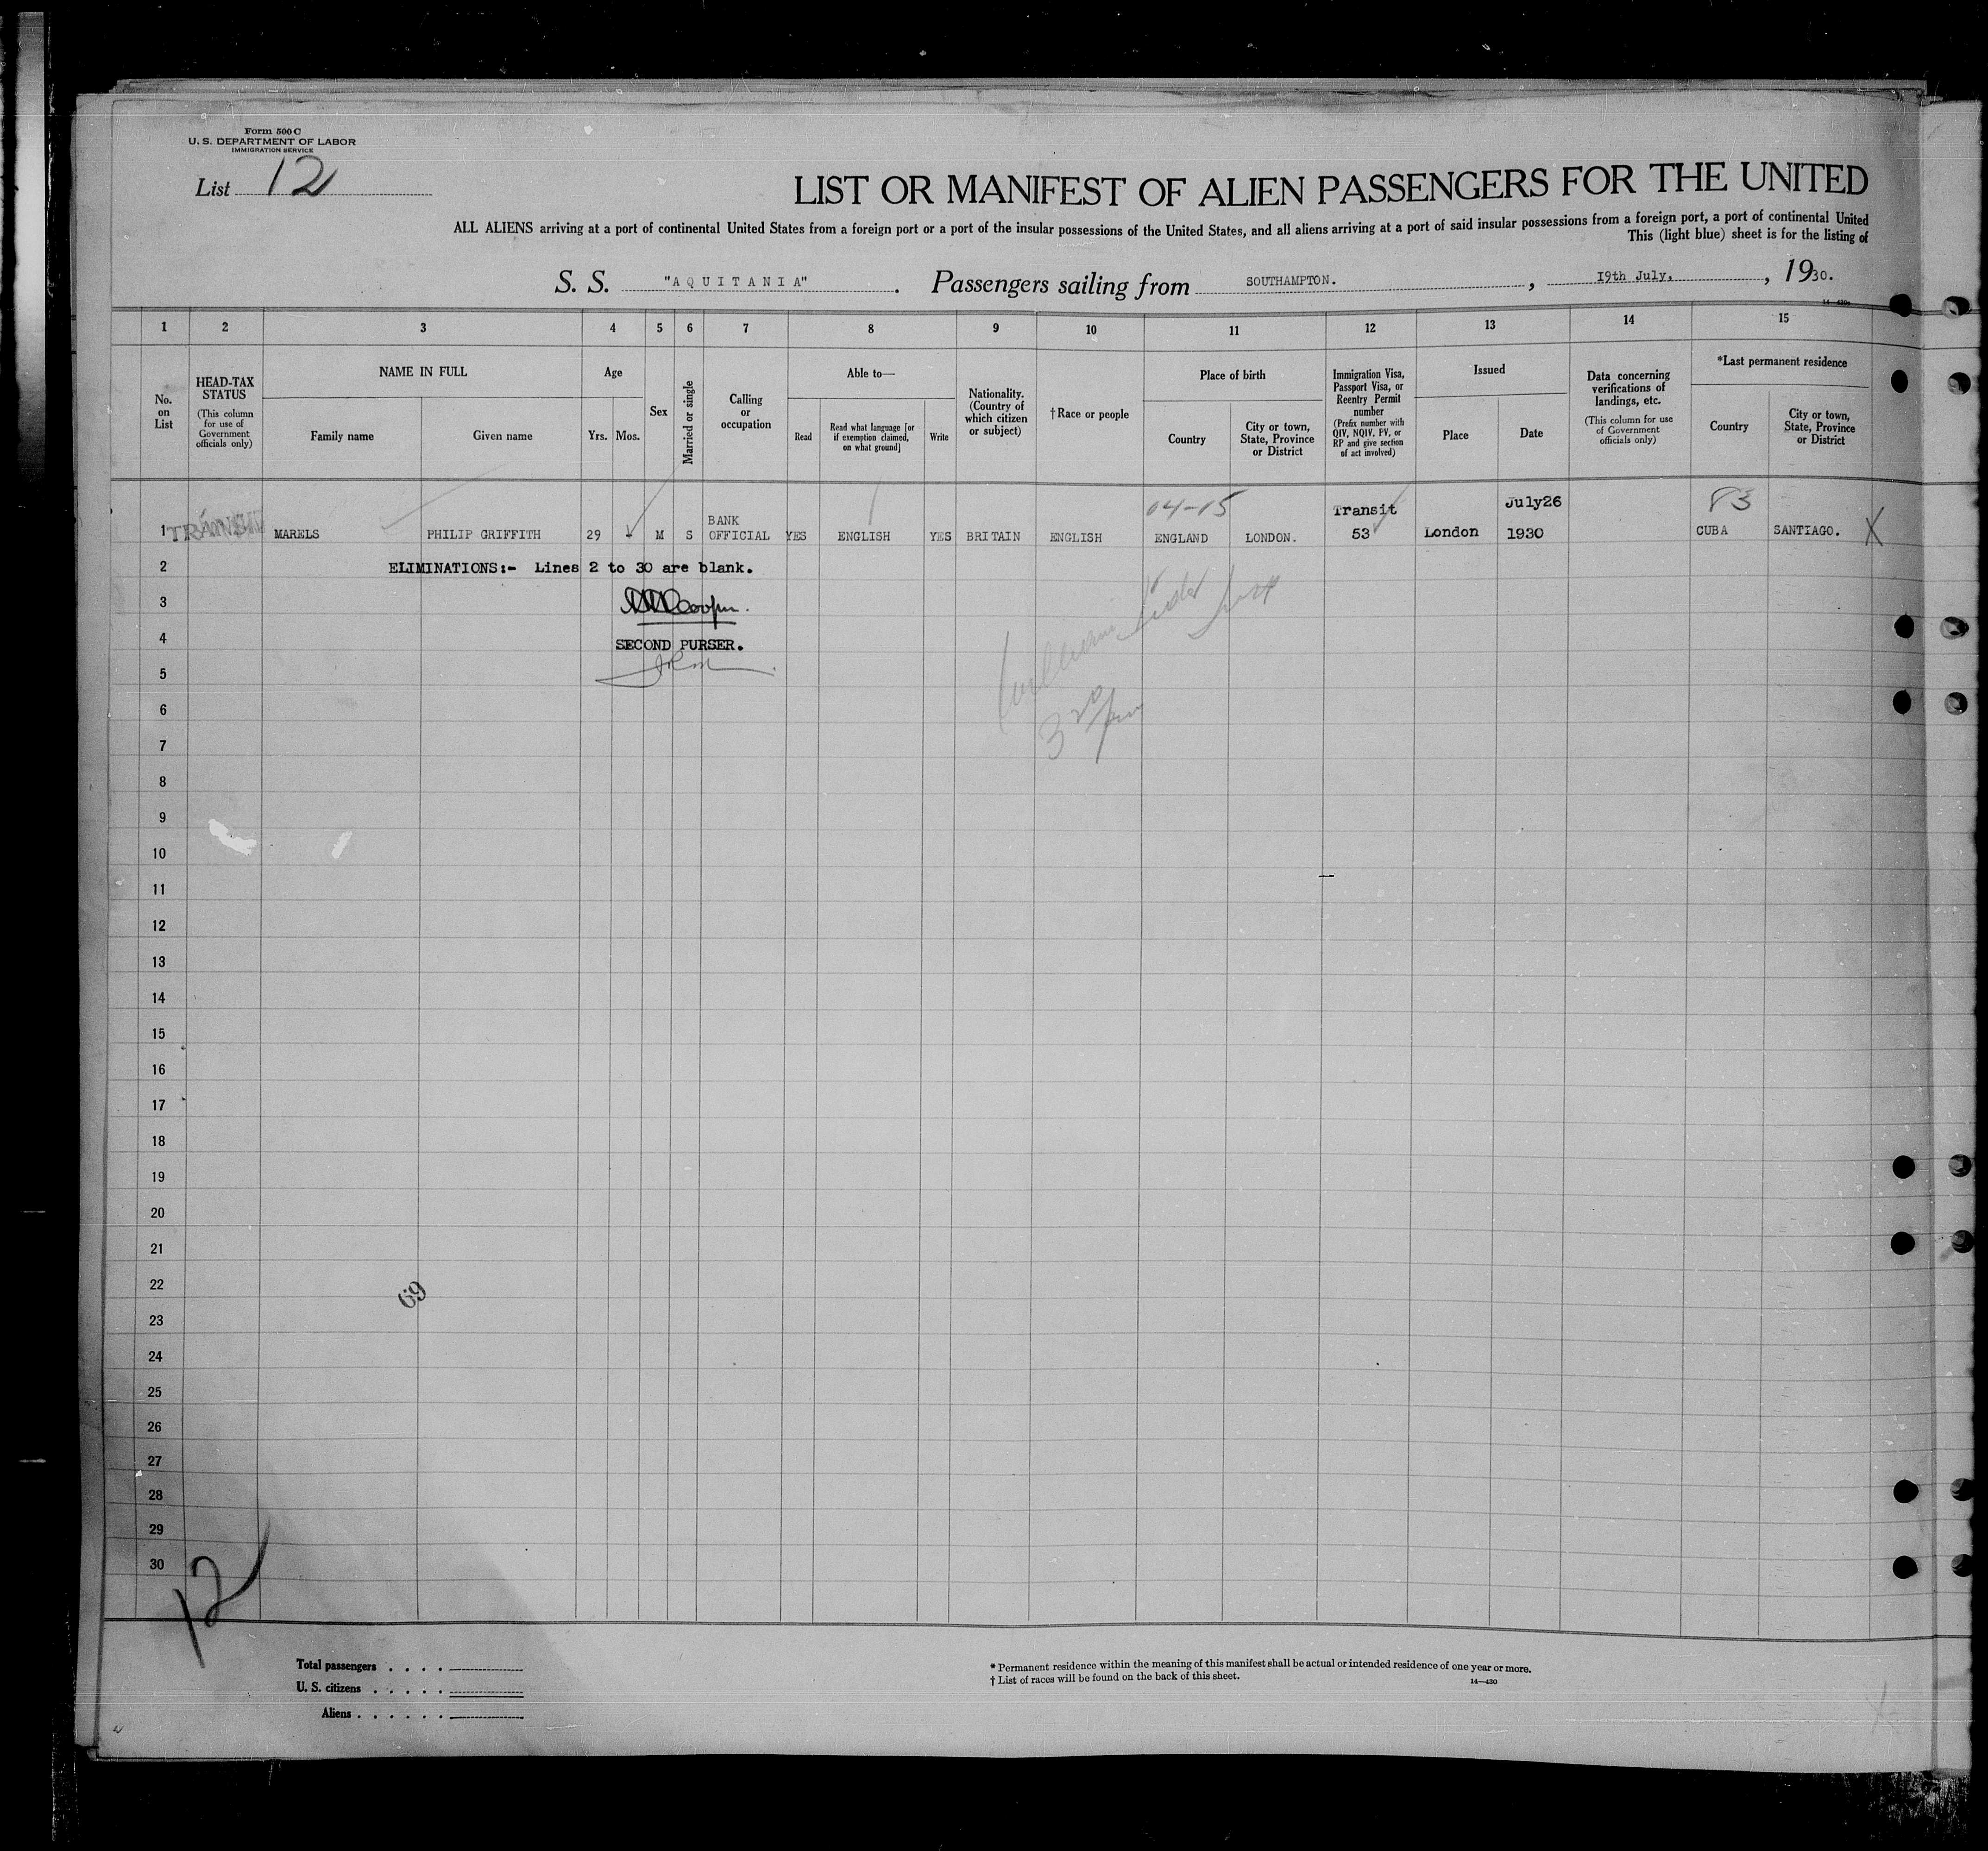 Form 500 C
U. S. DEPARTMENT OF LABOR
IMMIGRATION SERVICE
List 12
LIST OR MANIFEST OF ALIEN PASSENGERS FOR THE UNITED
ALL ALIENS arriving at a port of continental United States from a foreign port or a port of the insular possessions of the United States, and all aliens arriving at a port of said insular possessions from a foreign port, a port of continental United
This (light blue) sheet is for the listing of
S. S. "AQUITANIA". Passengers sailing from SOUTHAMPTON., 19th July, , 1930.
1 2 3 4 5 6 7 8 9 10 11 12 13 14 15
No. on List
HEAD-TAX STATUS
(This column for use of Government officials only)
NAME IN FULL
Family name Given name
Age
Yrs. Mos.
Sex
Married or single
Calling or occupation
Able to—
Read
Read what language [or if exemption claimed, on what ground]
Write
Nationality. (Country of which citizen or subject)
†Race or people
Place of birth
Country
City or town, State, Province or District
Immigration Visa, Passport Visa, or Reentry Permit number
(Prefix number with QIV, NQIV, PV, or RP and give section of act involved)
Issued
Place Date
Data concerning verifications of landings, etc.
(This column for use of Government officials only)
*Last permanent residence
Country
City or town, State, Province or District
04-15 Transit July26 83
1 TRANSIT MARELS PHILIP GRIFFITH 29 M S BANK OFFICIAL YES ENGLISH YES BRITAIN ENGLISH ENGLAND LONDON. 53 London 1930 CUBA SANTIAGO. X
2 ELIMINATIONS:- Lines 2 to 30 are blank.
3 Cooper.
4 SECOND PURSER.
5
6
7
8
9
10
11
12
13
14
15
16
17
18
19
20
21
22
69
23
24
25
26
27
28
29
30
12
Total passengers
U. S. citizens
Aliens
* Permanent residence within the meaning of this manifest shall be actual or intended residence of one year or more.
† List of races will be found on the back of this sheet.
14—430